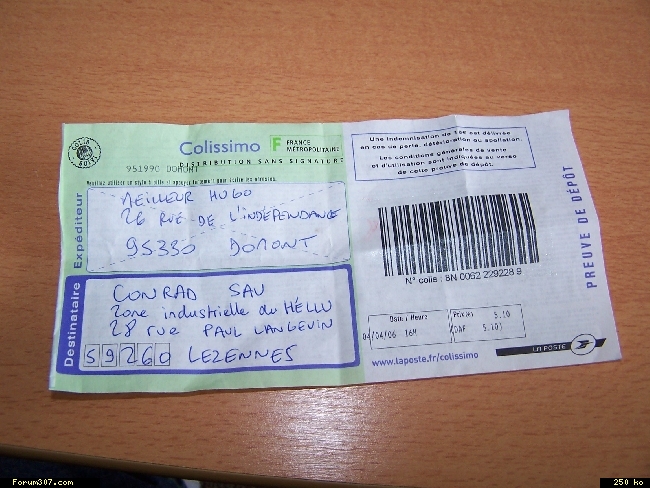 Colissimo F FRANCE MÉTROPOLITAINE
DISTRIBUTION SANS SIGNATURE
951990 DOMONT
Expéditeur
MEILLEUR HUGO
26 RUE DE L'INDÉPENDANCE
95330 DOMONT
Destinataire
CONRAD SAV
Zone industrielle du HÉLLU
28 rue PAUL LANGEVIN
59260 LEZENNES
Une indemnisation de est délivrée
en cas de perte, détérioration ou spoliation.
Les conditions générales de vente
et d'utilisation sont indiquées au verso
de cette preuve de dépôt.
PREUVE DE DÉPÔT
N° colis : 8N 0062 229228 9
Date / Heure
5.10
04/04/06 16H
5.10)
www.laposte.fr/colissimo
LA POSTE
Forum307.com
250 ko